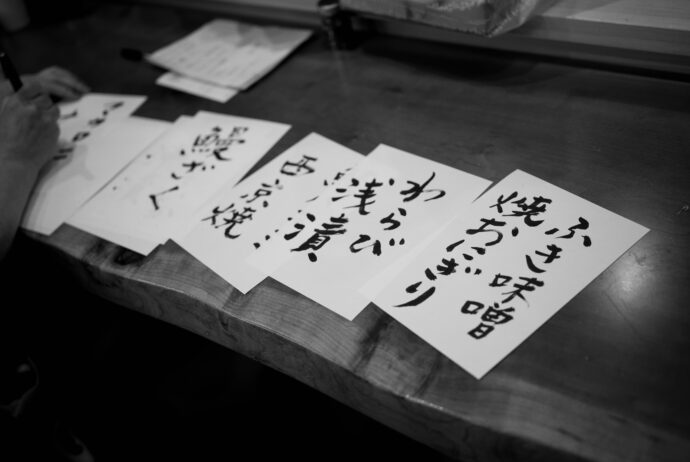 ふき味噌
焼おにぎり
わらび
浅漬
西京焼
鰻ざく